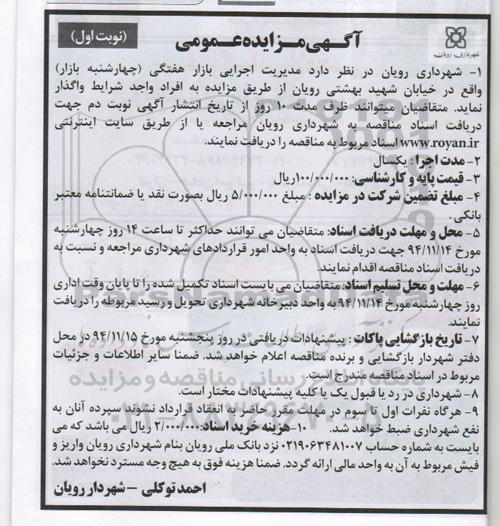 شهرداری رویان
آگهی مزایده عمومی
(نوبت اول)
۱- شهرداری رویان در نظر دارد مدیریت اجرایی بازار هفتگی (چهارشنبه بازار)
واقع در خیابان شهید بهشتی رویان از طریق مزایده به افراد واجد شرایط واگذار
نماید. متقاضیان میتوانند ظرف مدت ۱۰ روز از تاریخ انتشار آگهی نوبت دم جهت
دریافت اسناد مناقصه به شهرداری رویان مراجعه یا از طریق سایت اینترنتی
www.royan.ir اسناد مربوط به مناقصه را دریافت نمایند.
۲- مدت اجرا: یکسال
۳- قیمت پایه و کارشناسی: ۱۰۰/۰۰۰/۰۰۰ ریال
۴- مبلغ تضمین شرکت در مزایده : مبلغ ۵/۰۰۰/۰۰۰ ریال بصورت نقد یا ضمانتنامه معتبر
بانکی.
۵- محل و مهلت دریافت اسناد: متقاضیان می توانند حداکثر تا ساعت ۱۴ روز چهارشنبه
مورخ ۹۴/۱۱/۱۴ جهت دریافت اسناد به واحد امور قراردادهای شهرداری مراجعه و نسبت به
دریافت اسناد مناقصه اقدام نمایند.
۶- مهلت و محل تسلیم اسناد: متقاضیان می بایست اسناد تکمیل شده را تا پایان وقت اداری
روز چهارشنبه مورخ ۹۴/۱۱/۱۴ به واحد دبیرخانه شهرداری تحویل و رسید مربوطه را دریافت
نمایند.
۷- تاریخ بازگشایی پاکات : پیشنهادات دریافتی در روز پنجشنبه مورخ ۹۴/۱۱/۱۵ در محل
دفتر شهردار بازگشایی و برنده مناقصه اعلام خواهد شد. ضمنا سایر اطلاعات و جزئیات
مربوط در اسناد مناقصه مندرج است.
۸- شهرداری در رد یا قبول یک یا کلیه پیشنهادات مختار است.
۹- هرگاه نفرات اول تا سوم در مهلت مقرر حاضر به انعقاد قرارداد نشوند سپرده آنان به
نفع شهرداری ضبط خواهد شد. ۱۰- هزینه خرید اسناد: ۲/۰۰۰/۰۰۰ ریال می باشد که می
بایست به شماره حساب ۰۲۱۹۰۶۳۴۸۱۰۰۷ نزد بانک ملی رویان بنام شهرداری رویان واریز و
فیش مربوط به آن به واحد مالی ارائه گردد. ضمنا هزینه فوق به هیچ وجه مسترد نخواهد شد.
احمد توکلی – شهردار رویان